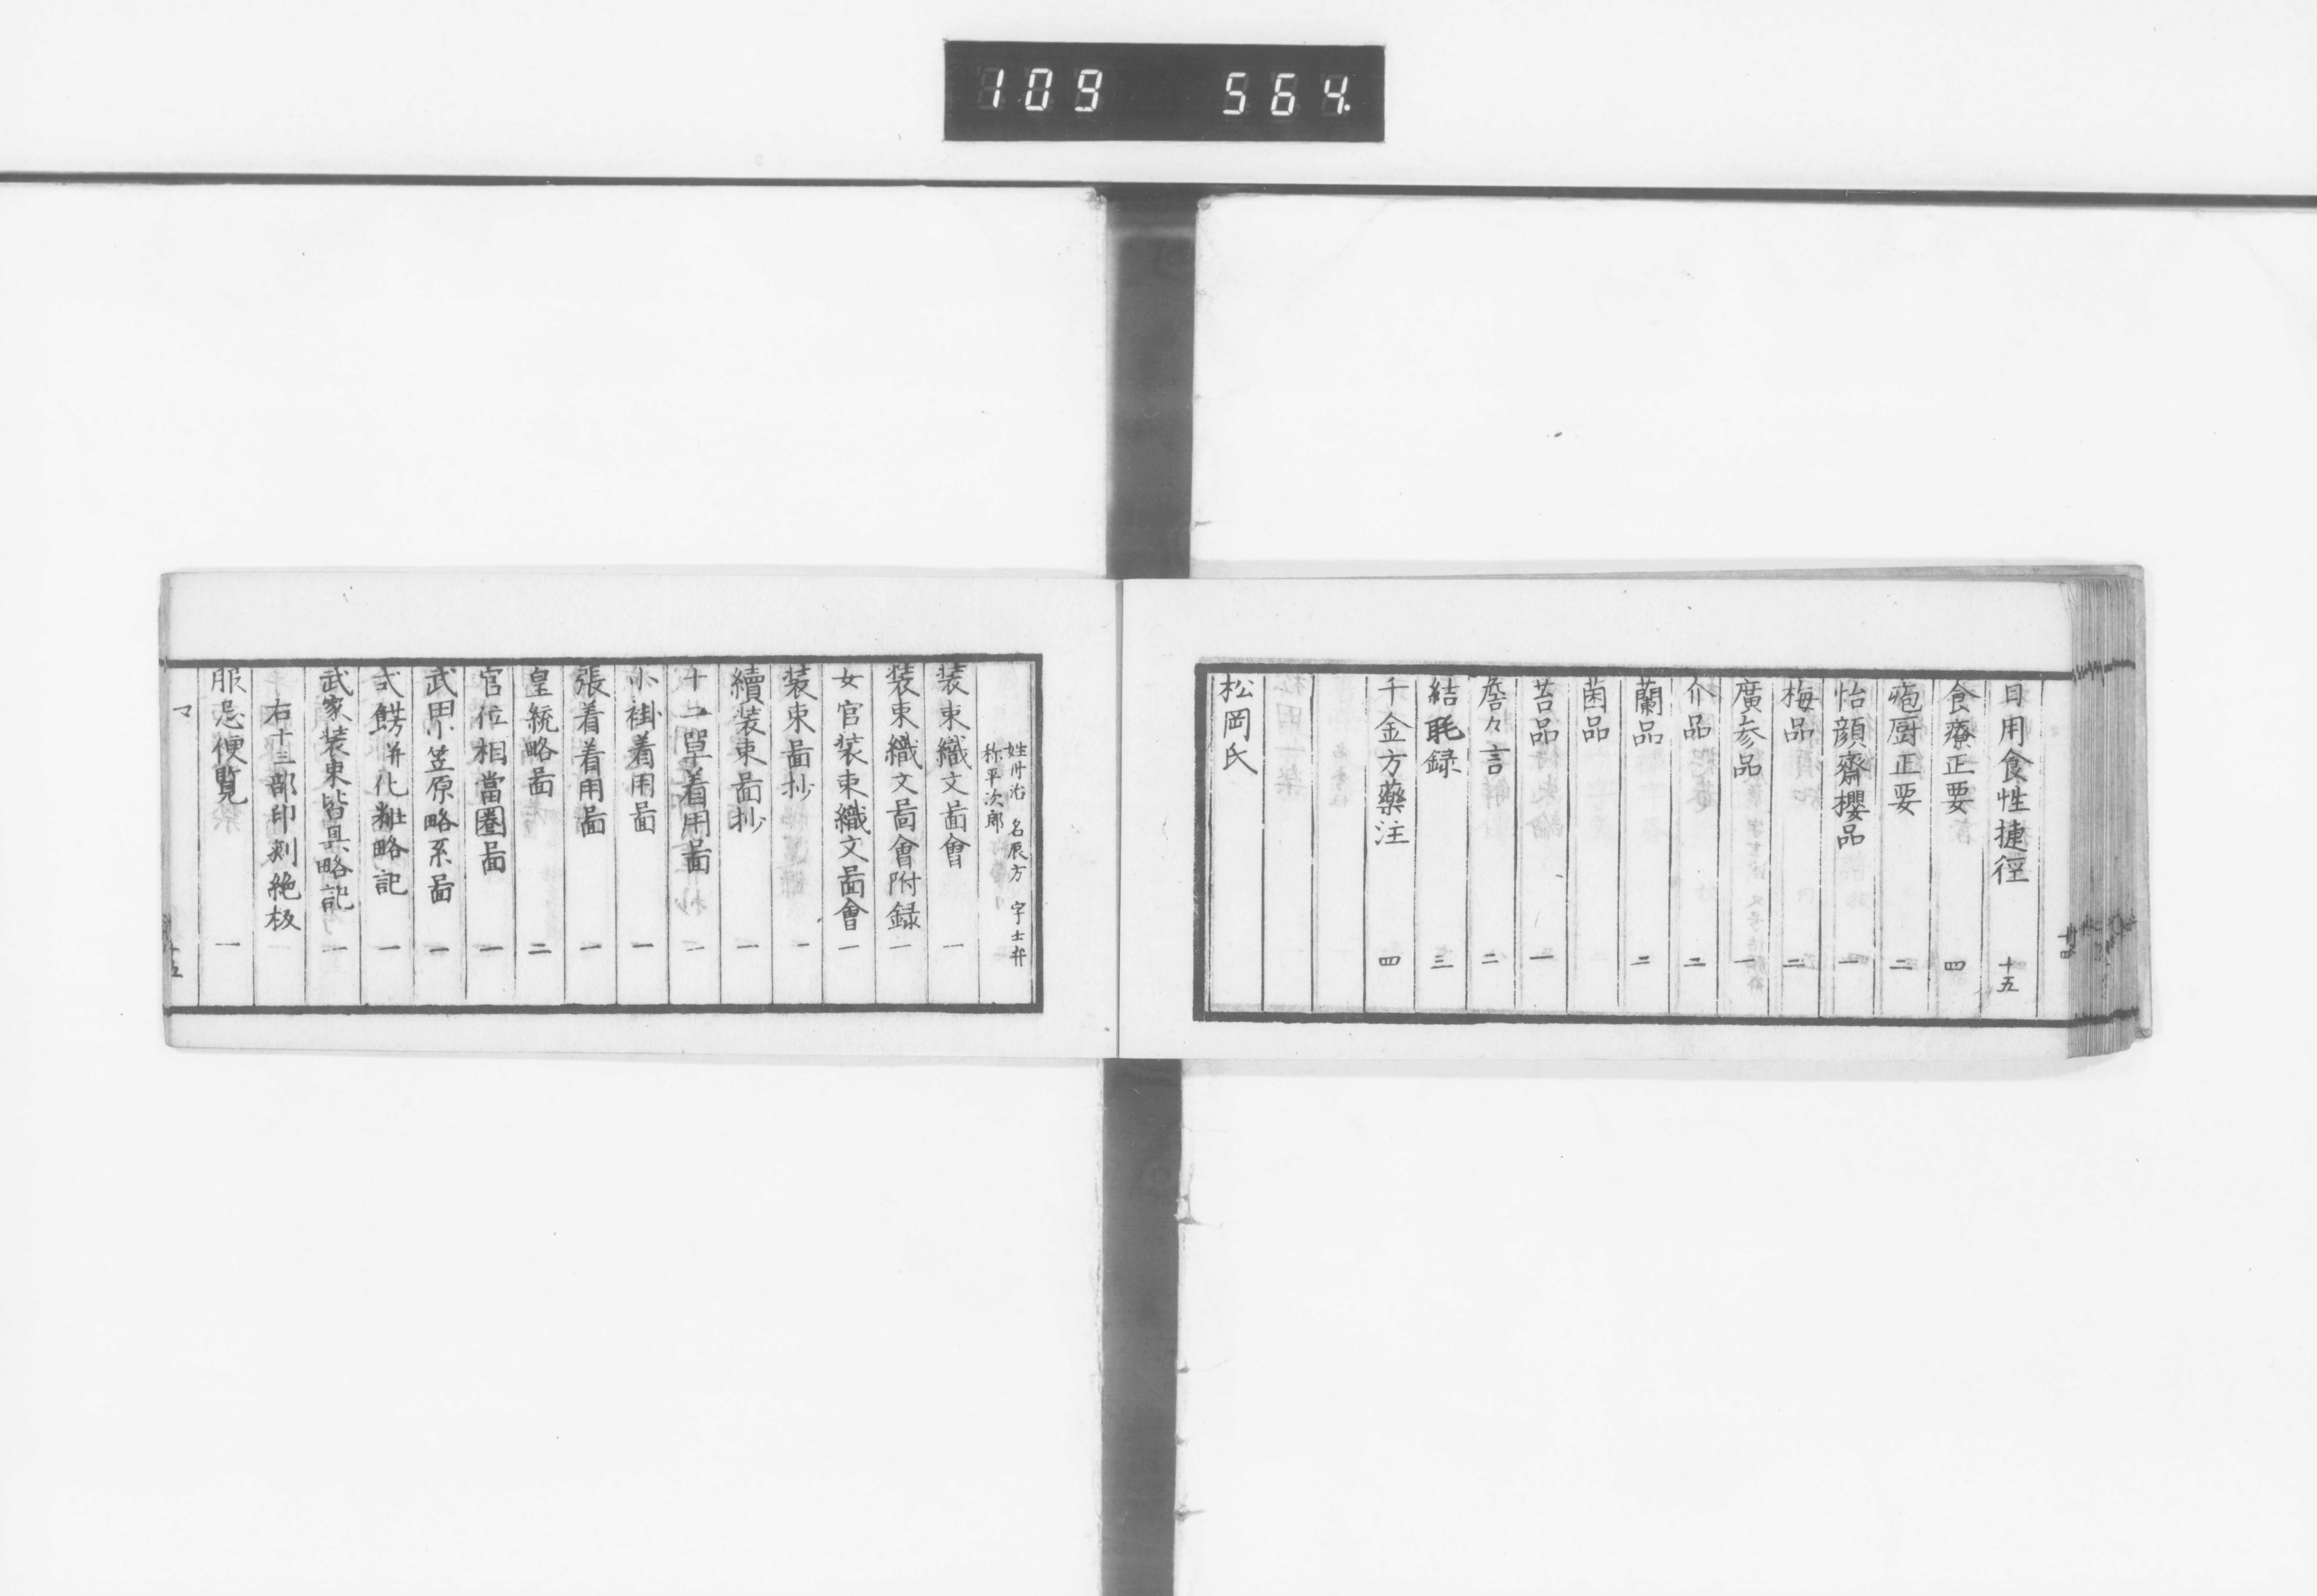 109 564.
日用食性捷徑 十五
食療正要 四
庖厨正要 二
怡顔齋櫻品 一
梅品 二
廣参品 一
介品 二
蘭品 二
菌品
苔品 一
詹々言 二
結毦録 三
千金方藥注 四
松岡氏
姓 治 名辰方 字士弁
称平次郎
装束織文啚會 一
装束織文啚會附録 一
女官装束織文啚會 一
装束啚抄 一
續装束啚抄 一
十二單着用啚 一
小褂着用啚 一
張着着用啚 一
皇統略啚 二
官位相當圏啚 一
武田小笠原略系啚 一
式餝并化粧略記 一
武家装束皆具略記 一
右十三部印刻絶板
服忌便覧 一
マ
十五